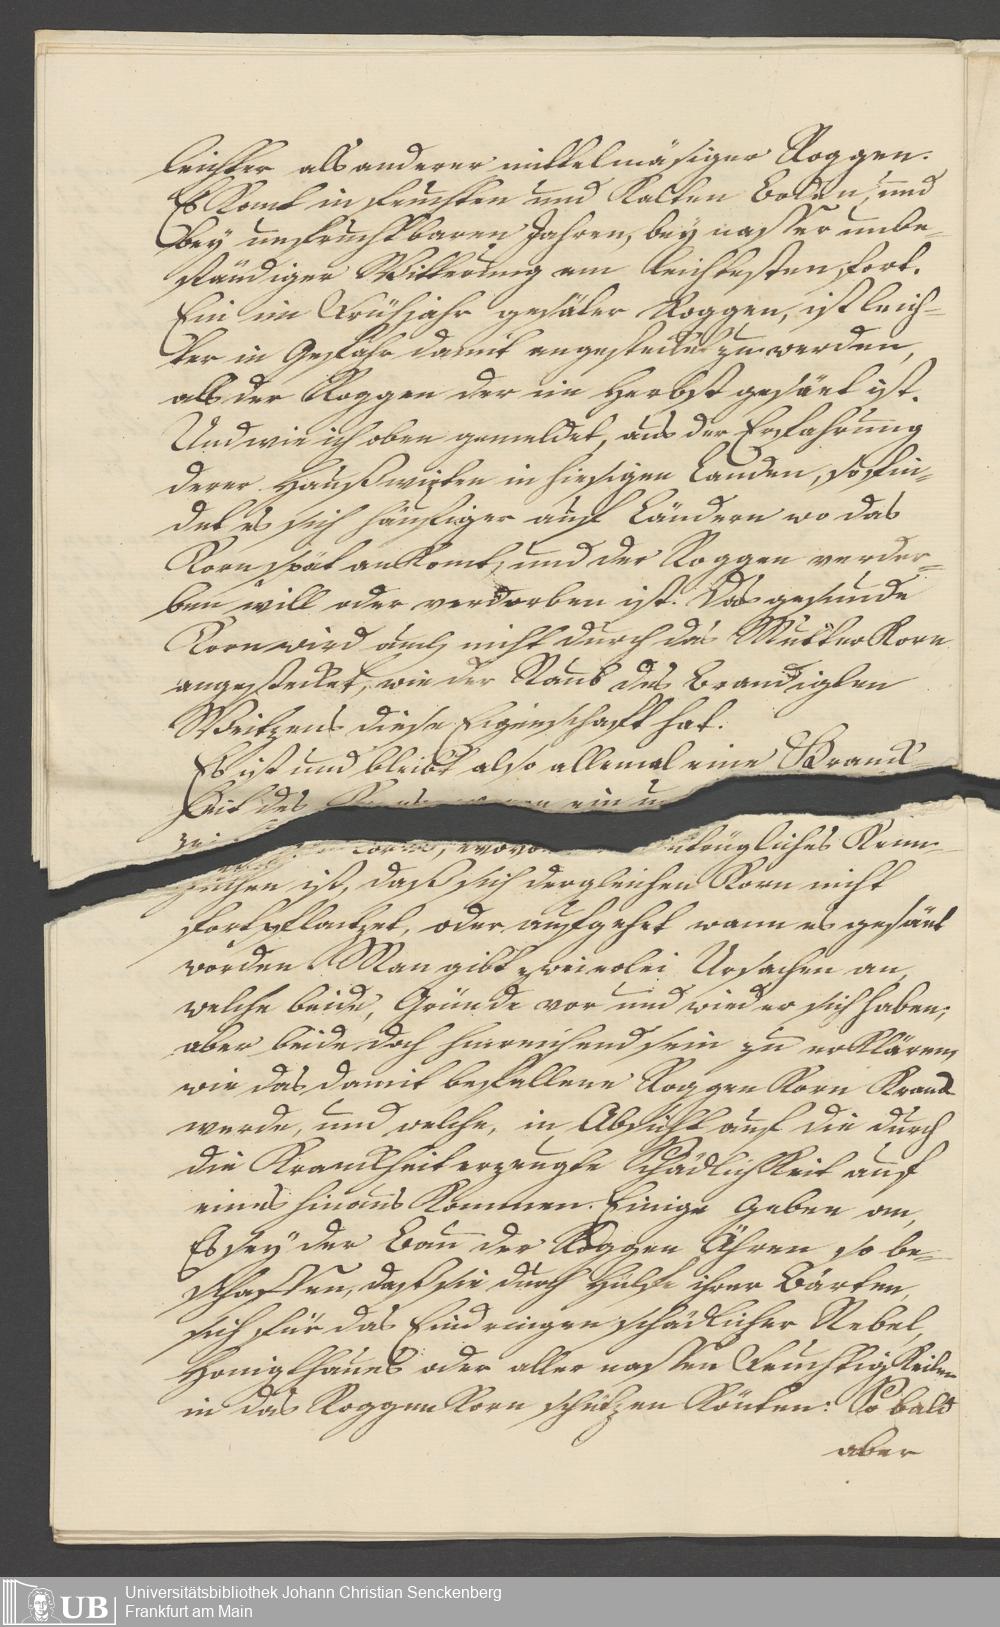 leichter als anderer mittelmäsiger Roggen.
Es komt in feuchten und kalten Boden, und
bey unfruchtbaren Jahren, bey nasser unbe-
ständiger Witterung am leichtesten fort.
Ein im Frühjahr gesäter Roggen, ist leich-
ter in Gefahr damit angesteckt zu werden,
als der Roggen der im Herbst gesäet ist.
Und wie ich oben gemeldet, aus der Erfahrung
derer Haußwirten in hiesigen Landen, so fin-
det es sich häufiger auf Ländern wo das
Korn spät ankomt, und der Roggen verder-
ben will oder verdorben ist. Das gesunde
Korn wird auch nicht durch das Mutter Korn
angestecket, wie der Staub des Brandigten
Weitzens diese Eigenschaft hat.
Es ist und bleibt also allemal eine Kranck-
heit des ein
untrügliches Kenn-
zeichen ist, daß sich dergleichen Korn nicht
fortpflantzet, oder aufgehet wann es gesäet
worden. Man gibt zweierlei Ursachen an,
welche beide, Gründe vor und wieder sich haben;
aber beide doch hinreichend sein zu erklären,
wie das damit befallene Roggen Korn Kranck
werde, und welche, in Absicht auf die durch
die Kranckheit erzeugte Schädlichkeit auf
eines hinaus kommen. Einige geben an,
Es sey der Bau der Roggen Ähren so be-
schaffen, daß sie durch Hülfe ihrer Bärten,
sich für das Eindringen schädlicher Nebel,
Honigthaues oder aller nassen Feuchtigkeiten
in das Roggen Korn schützen könten: So bald
aber
UB
Universitätsbibliothek Johann Christian Senckenberg
Frankfurt am Main